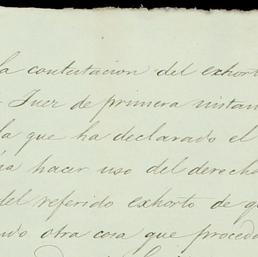 la contestacion del exhort
Juez de primera instan
la que ha declarado el
hacer uso del derecho
del referido exhorto de qu
otra cosa que proceda